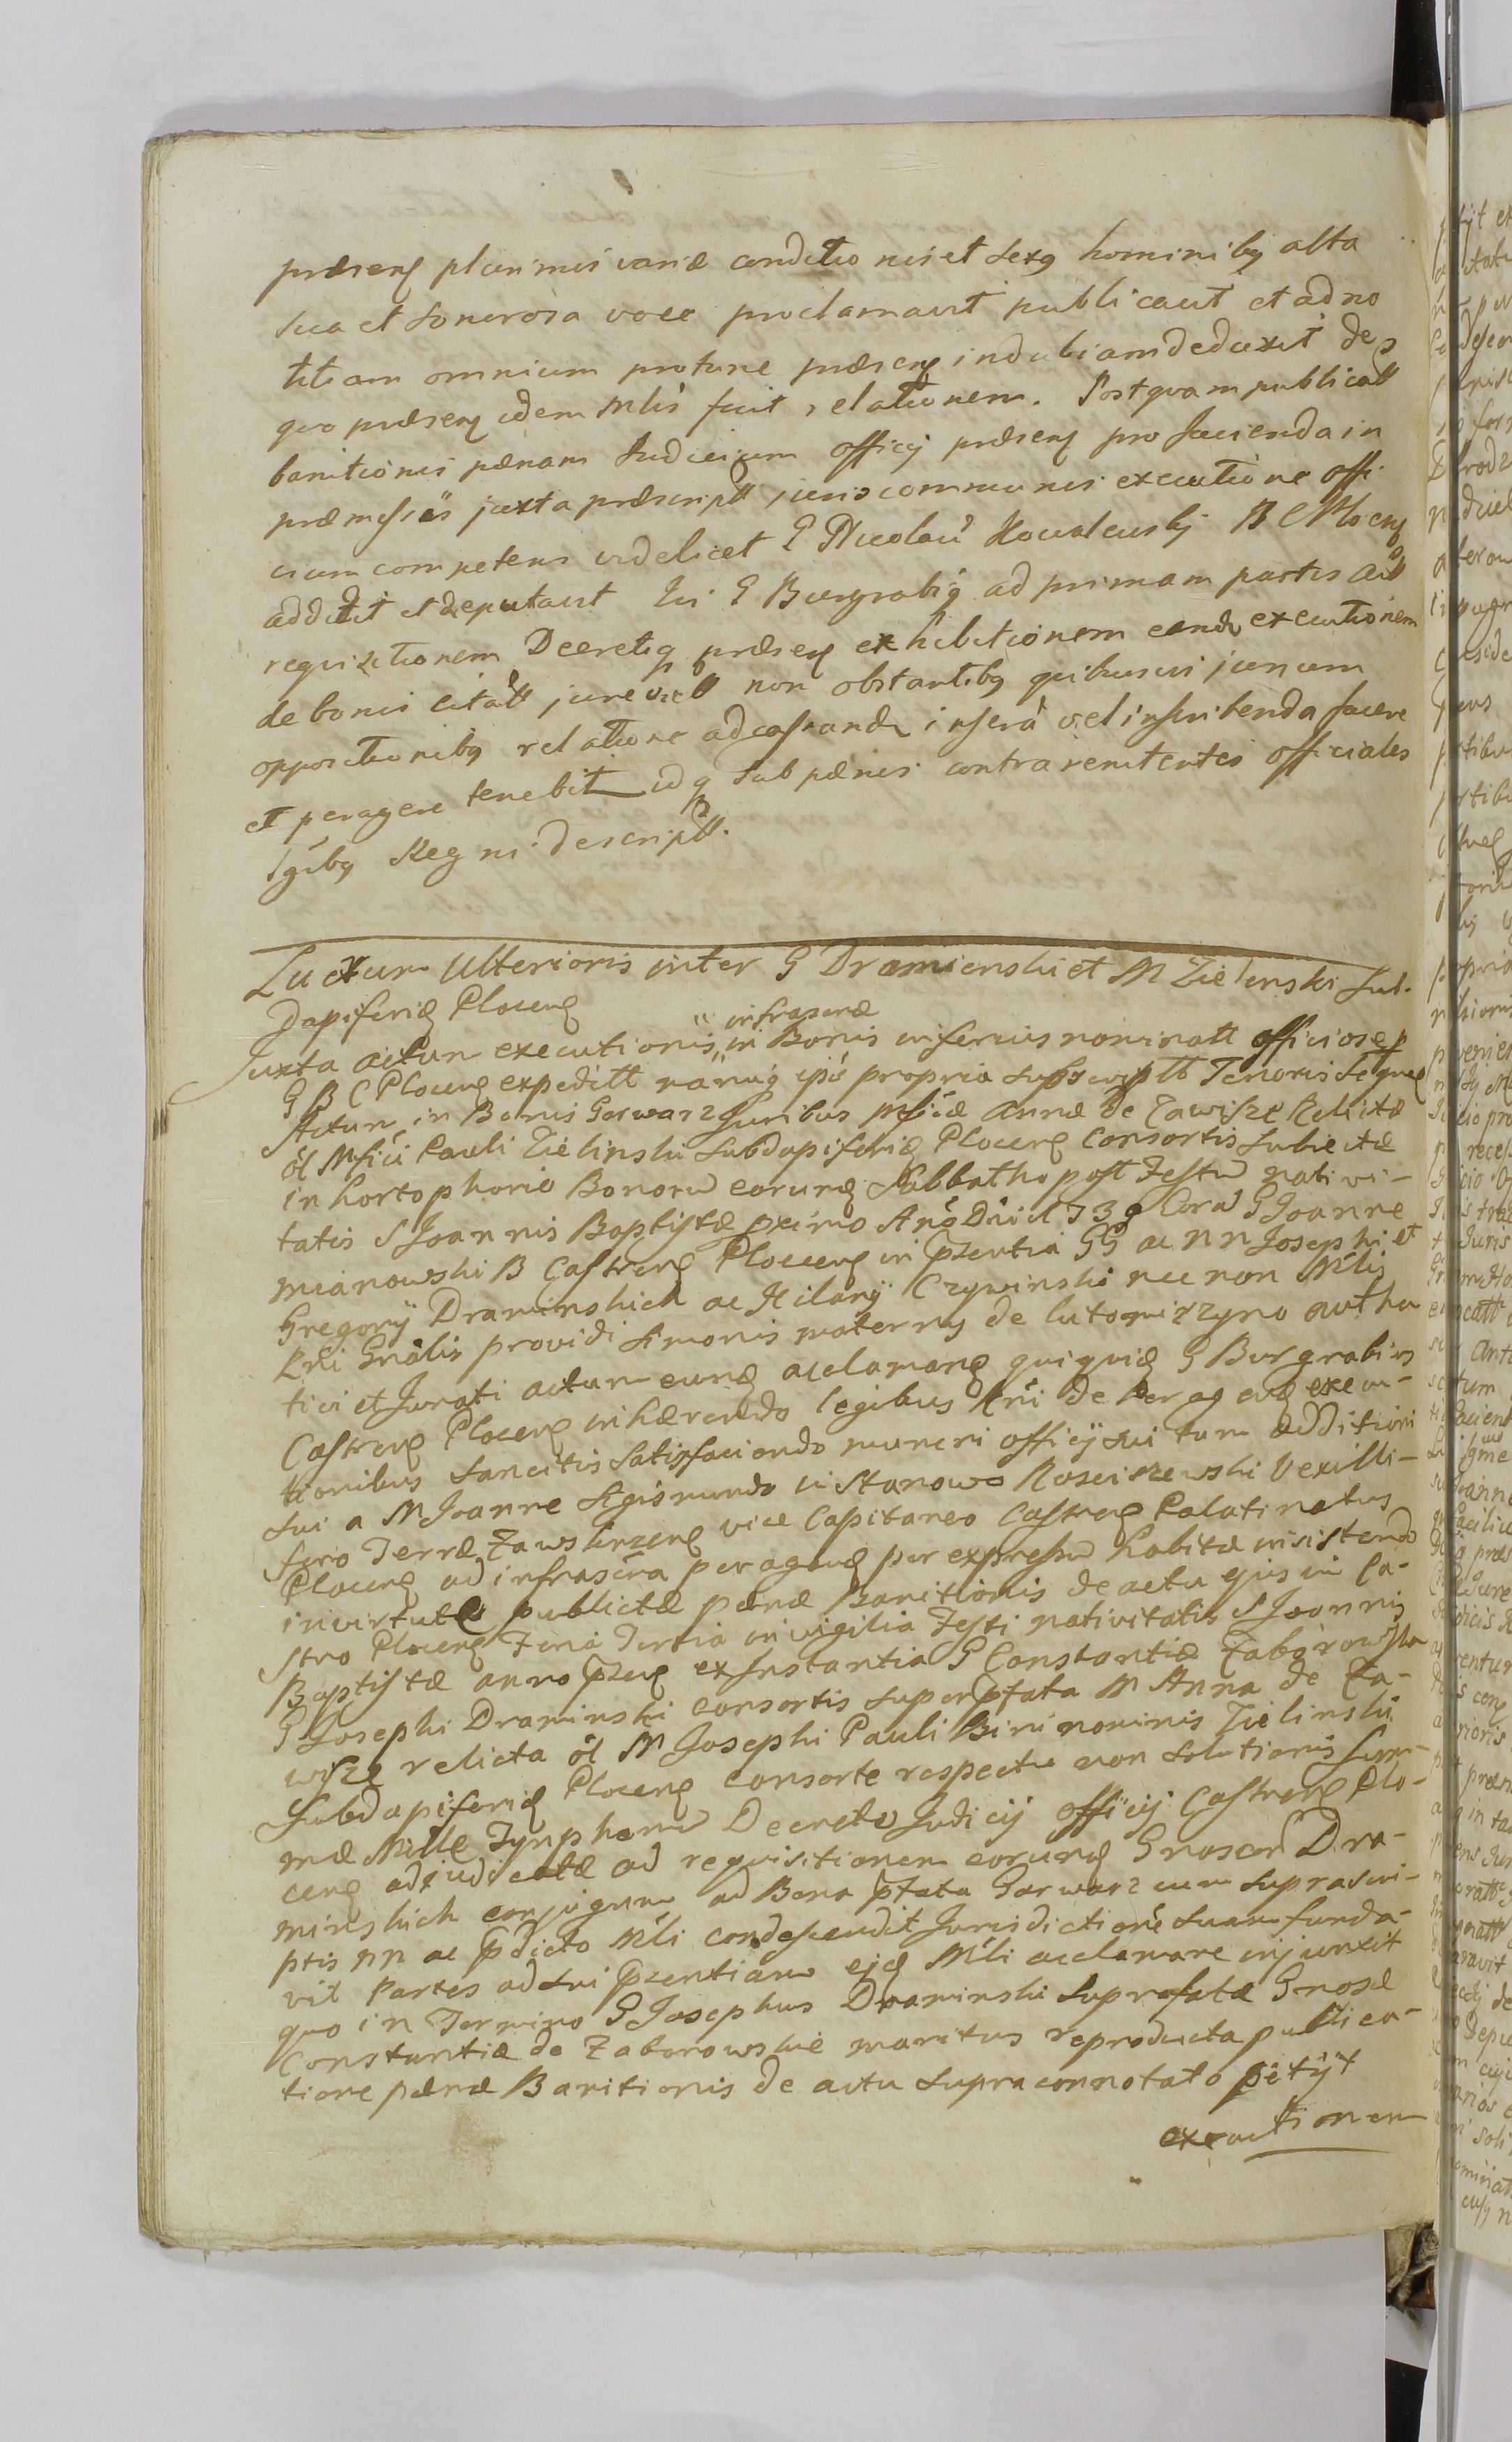 præseng plurimis variæ conditionis et sexq hominibq alta
sua et sonorosa voce proclamavit publicavit et ad no
titiam omnium protunc præseng indubiam deduxit de
quo præseng idem Mlis fecit relationem. Postquam publicatt
banitionis pænam Judicium officij præseng pro facienda in
præmissis juxta præscriptt juris communis executione offi
cium competens videlicet G Nicolau Kowalewskj B C Ploceng
addidit et deputavit Qui G Burgrabiq ad primam partis actt
requizitionem Decretiq præseng exhibitionem eande executionem
de bonis citatt jure victt non obstantibq quibusvis jurium
oppositionibq relatione ad cassanda inserâ vel inscribenda facere
et peragere tenebit idq sub pænis contra renitentes officiales
lgibq Regni descriptt.
Luctum Ulterioris inter G Dramienski et M Zielenski Sub-
dapiferiq Ploceng
Juxta actum executionis infrascræ in Bonis inferius nominatt officiose p
G B C Ploceng expeditt manuq ipiś propria subscriptt Tenoris seqneg
Actum in Bonis Garwarz Juribus Mficæ Annæ de Zawisze Relictæ
ol Mfici Pauli Zielinski Subdapiferiq Ploceng Consortis subiectæ
in hortophorio Bonorū eorunq Sabbatho post Festū nativi-
tatis S Joannis Baptistæ pximo Año Dñi 1739 Corā G Joanne
mianowski B Castreng Ploceng in pzentia GG ac NN Josephi et
Gregorij Draminskich ac Hilarij Czywinski nec non Mlij
Rñi Gnâlis providi Simonis materny de lutomirzyno authen
tici et Jurati actum eunq acclamang quiquiq G Burgrabius
Castreng Ploceng inhærendo legibus Rni de peragenq execu-
tionibus sancitis satisfaciendo muneri officij sui tum additioni
sui a M Joanne Sigismundo in Stanowo Rosciszewski Vexilli-
fero Terræ Zawskrzeng vice Capitaneo Castreng Palatinatus
Ploceng ad infrascra peragenq per expressū habitæ insistendo
in virtute publictæ pænæ Banitionis de actu ejus in Ca-
stro Ploceng Feria Tertia in vigilia Festi nativitatis S Joannis
Baptistæ anno pzeng ex Instantia G Constantiæ Zaborowska
G Josephi Draminski consortis super ptata M Anna de Za-
wisze relicta ol M Josephi Pauli Bini nominis Zielinski
Subdapiferiq Ploceng consorte respectu non solutionis sum-
mæ Mille Tynphonū Decreto Judicij officij Castreng Plo-
ceng adjudicatæ ad requisitionem eorunq Gnoscorū Dra-
minskich conjugum ad Bona ptata Garwarz cum suprascri-
ptis nn ac pdicto Mli condescendit Jurisdictionē suam funda-
vit Partes ad sui pzentiam ejq Mli acclamare injunxit
quo in Termino G Josephus Draminski suprafatæ Gnosæ
Constantiæ de Zaborowskie maritus reproducta publica-
tione pænæ Banitionis de actu supra connotato petijt
executionem